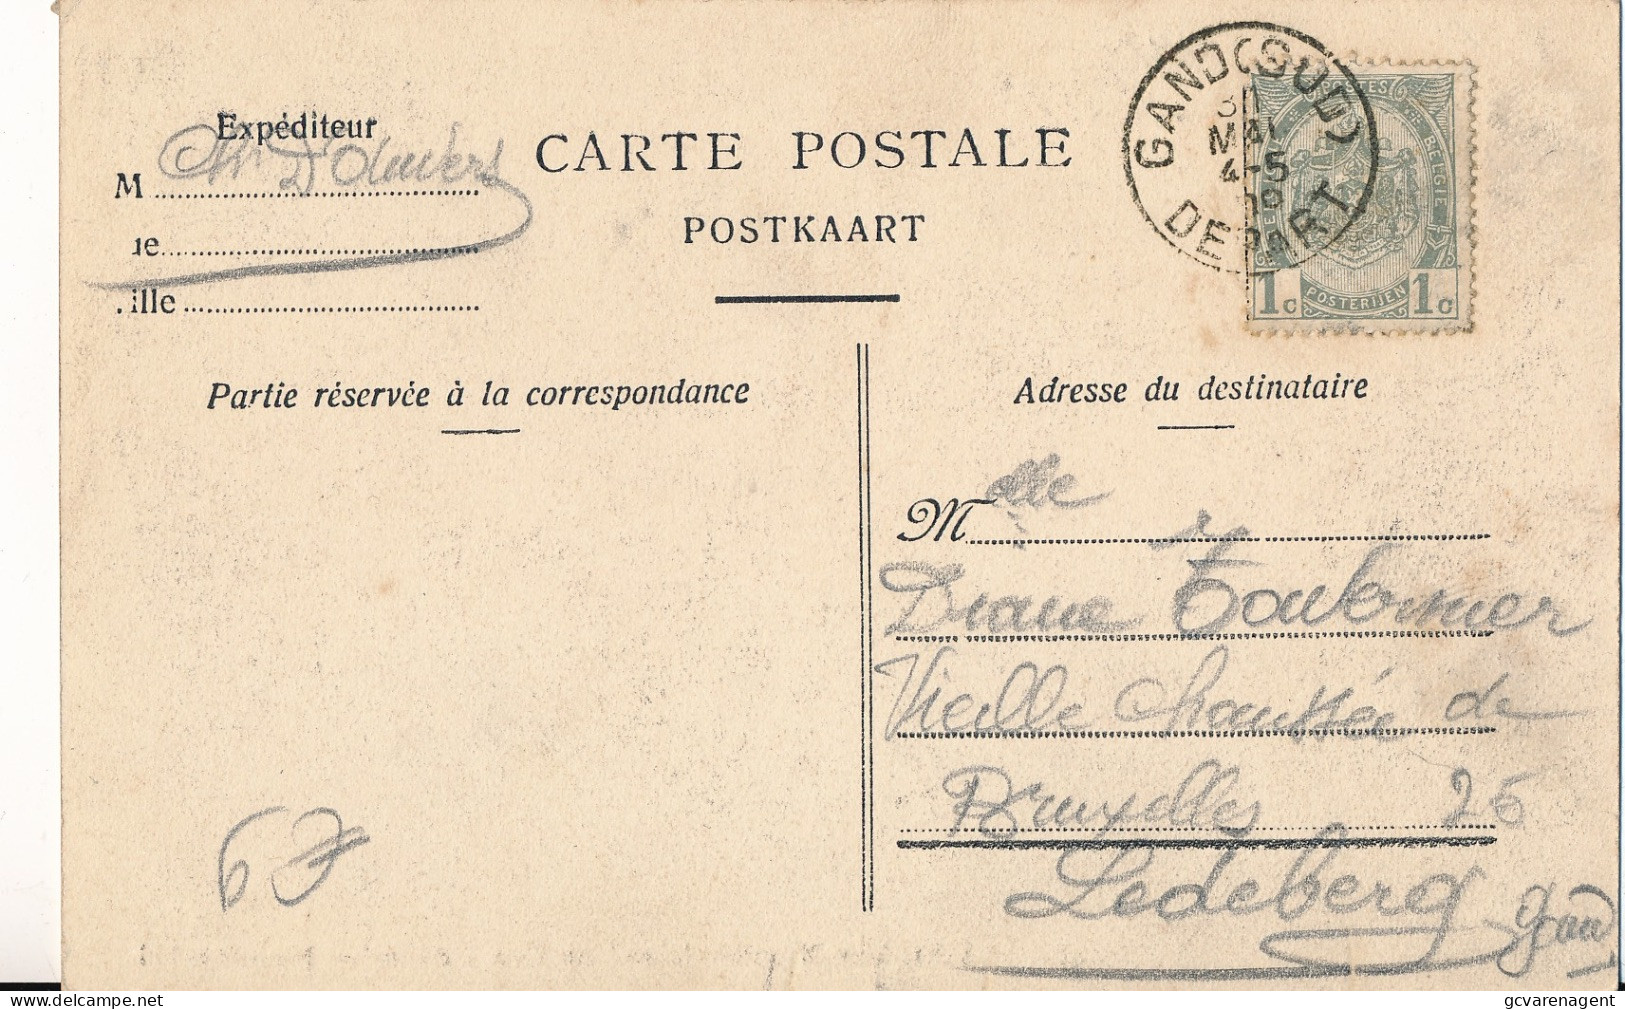 Expéditeur
M D'Olmkers
ue
ille
CARTE POSTALE
POSTKAART
GAND (SUD)
MAI
4-5
DEPART
POSTES BELGIE
POSTERIJEN
1c 1c
Partie réservée à la correspondance
Adresse du destinataire
Melle
Diane Toubernier
Vieille Chaussée de
Bruxelles 25
Ledeberg Gand
67
delcampe.net
gcvarenagent